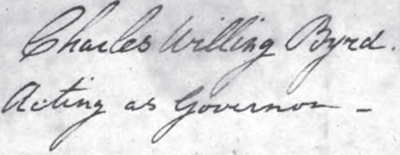 Charles Willing Byrd.
Acting as Governor -